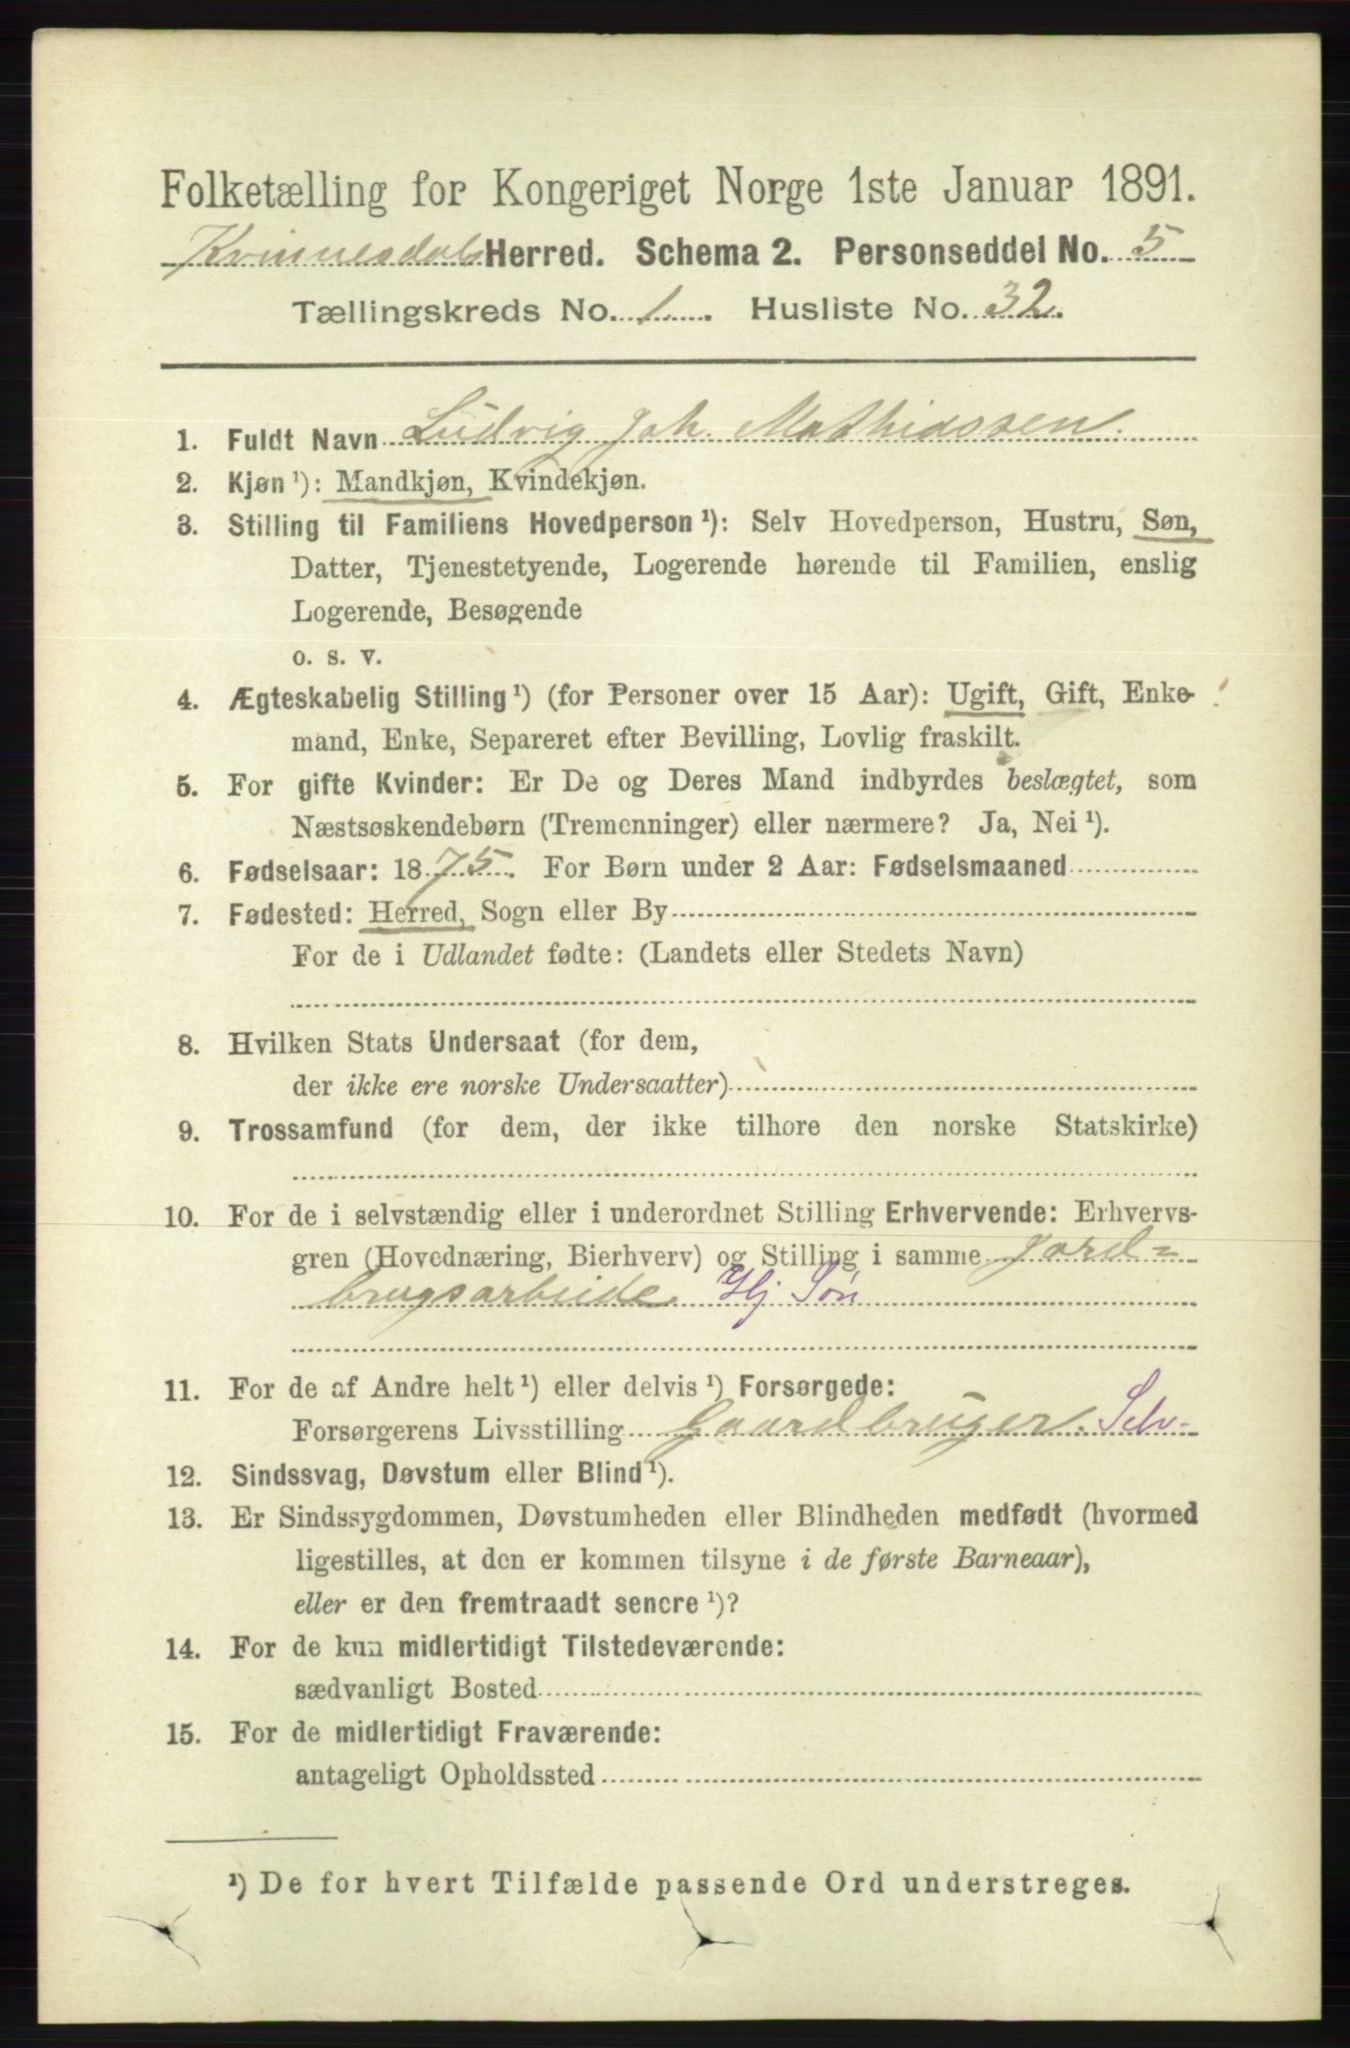 Folketælling for Kongeriget Norge 1ste Januar 1891.
Kvinnesdals Herred. Schema 2. Personseddel No. 5
Tællingskreds No. 1. Husliste No. 32.
1. Fuldt Navn Ludvig Joh. Mathiassen.
2. Kjøn ¹): Mandkjøn, Kvindekjøn.
3. Stilling til Familiens Hovedperson ¹): Selv Hovedperson, Hustru, Søn,
Datter, Tjenestetyende, Logerende hørende til Familien, enslig
Logerende, Besøgende
o. s. v.
4. Ægteskabelig Stilling ¹) (for Personer over 15 Aar): Ugift, Gift, Enke-
mand, Enke, Separeret efter Bevilling, Lovlig fraskilt.
5. For gifte Kvinder: Er De og Deres Mand indbyrdes beslægtet, som
Næstsøskendebørn (Tremenninger) eller nærmere? Ja, Nei ¹).
6. Fødselsaar: 1875. For Børn under 2 Aar: Fødselsmaaned
7. Fødested: Herred, Sogn eller By
For de i Udlandet fødte: (Landets eller Stedets Navn)
8. Hvilken Stats Undersaat (for dem,
der ikke ere norske Undersaatter)
9. Trossamfund (for dem, der ikke tilhore den norske Statskirke)
10. For de i selvstændig eller i underordnet Stilling Erhvervende: Erhvervs-
gren (Hovednæring, Bierhverv) og Stilling i samme Jord=
brugsarbeide. Hj Søn
11. For de af Andre helt ¹) eller delvis ¹) Forsørgede:
Forsørgerens Livsstilling Gaardbruger. Selv-
12. Sindssvag, Døvstum eller Blind ¹).
13. Er Sindssygdommen, Døvstumheden eller Blindheden medfødt (hvormed
ligestilles, at den er kommen tilsyne i de første Barneaar),
eller er den fremtraadt senere ¹)?
14. For de kun midlertidigt Tilstedeværende:
sædvanligt Bosted
15. For de midlertidigt Fraværende:
antageligt Opholdssted
¹) De for hvert Tilfælde passende Ord understreges.